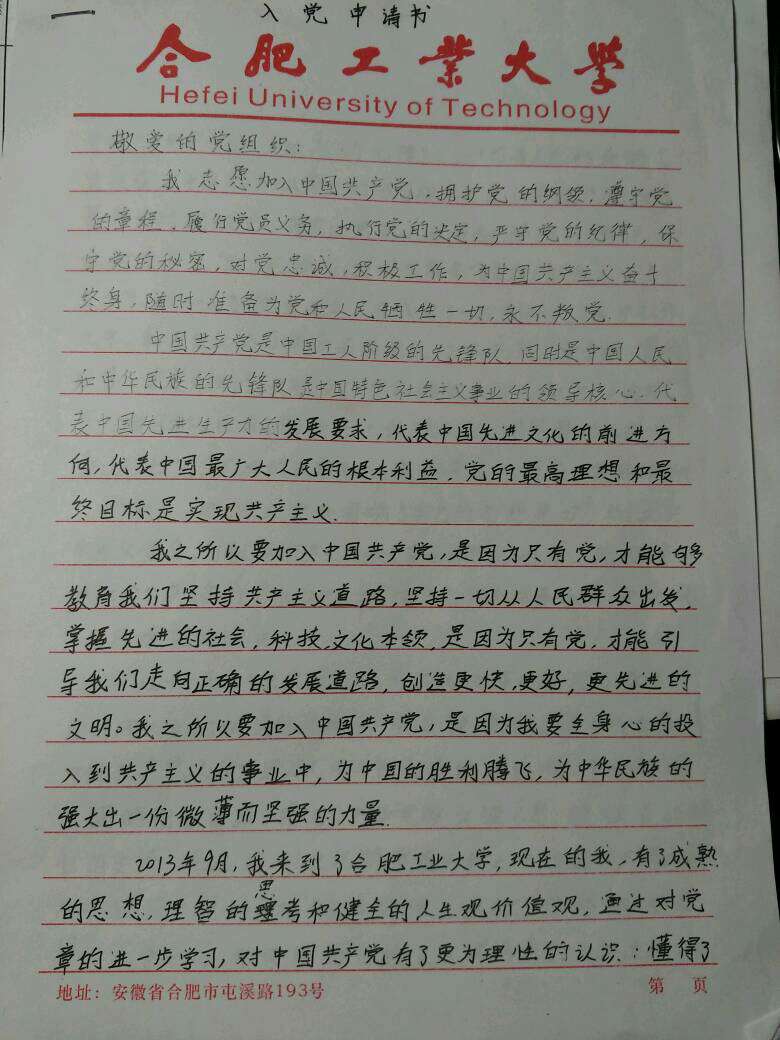 入党申请书
合肥工业大学
Hefei University of Technology
敬爱的党组织：
我志愿加入中国共产党，拥护党的纲领，遵守党
的章程，履行党员义务，执行党的决定，严守党的纪律，保
守党的秘密，对党忠诚，积极工作，为中国共产主义奋斗
终身，随时准备为党和人民牺牲一切，永不叛党.
中国共产党是中国工人阶级的先锋队，同时是中国人民
和中华民族的先锋队是中国特色社会主义事业的领导核心.代
表中国先进生产力的发展要求，代表中国先进文化的前进方
向，代表中国最广大人民的根本利益，党的最高理想和最
终目标是实现共产主义.
我之所以要加入中国共产党，是因为只有党，才能够
教育我们坚持共产主义道路，坚持一切从人民群众出发，
掌握先进的社会，科技，文化本领，是因为只有党，才能引
导我们走向正确的发展道路，创造更快，更好，更先进的
文明。我之所以要加入中国共产党，是因为我要全身心的投
入到共产主义的事业中，为中国的胜利腾飞，为中华民族的
强大出一份微薄而坚强的力量.
2013年9月，我来到了合肥工业大学，现在的我，有了成熟
的思想，理智的思考和健全的人生观价值观，通过对党
章的进一步学习，对中国共产党有了更为理性的认识：懂得了
地址：安徽省合肥市屯溪路193号
第 页